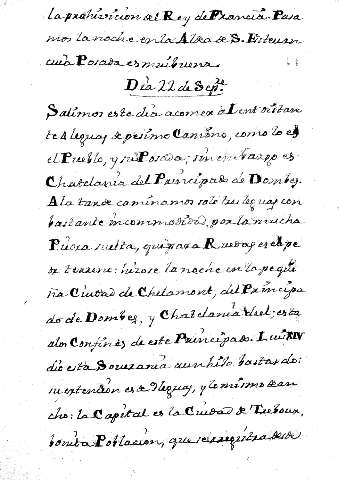 la prohivicion del Rey de Francia. Pasa
mos la noche en la Aldea de S. Esteun
cuia Posada es mui buena
Dia 22 de Sepre
Salimos este dia a comer a Lent distan
te 4 leguas de pesimo Camino, como lo es
el Pueblo, y su Posada; sin embargo es
Chatelania del Principado de Dombes.
A la tarde caminamos solo tres leguas con
bastante incommodidad, por la mucha
Piedra suelta, que para Ruedas es el pe
or terreno: hizose la noche en la peque
ña Ciudad de Chelamont, del Principa
do de Dombes, y Chatelania de el; esta
a los Confines de este Principado. Luis XIV
dio esta Sourania a un hijo bastardo:
su extension es de 9 leguas, y lo mismo de an
cho: la Capital es la Ciudad de Treboux,
bonita Poblacion, que se registra desde